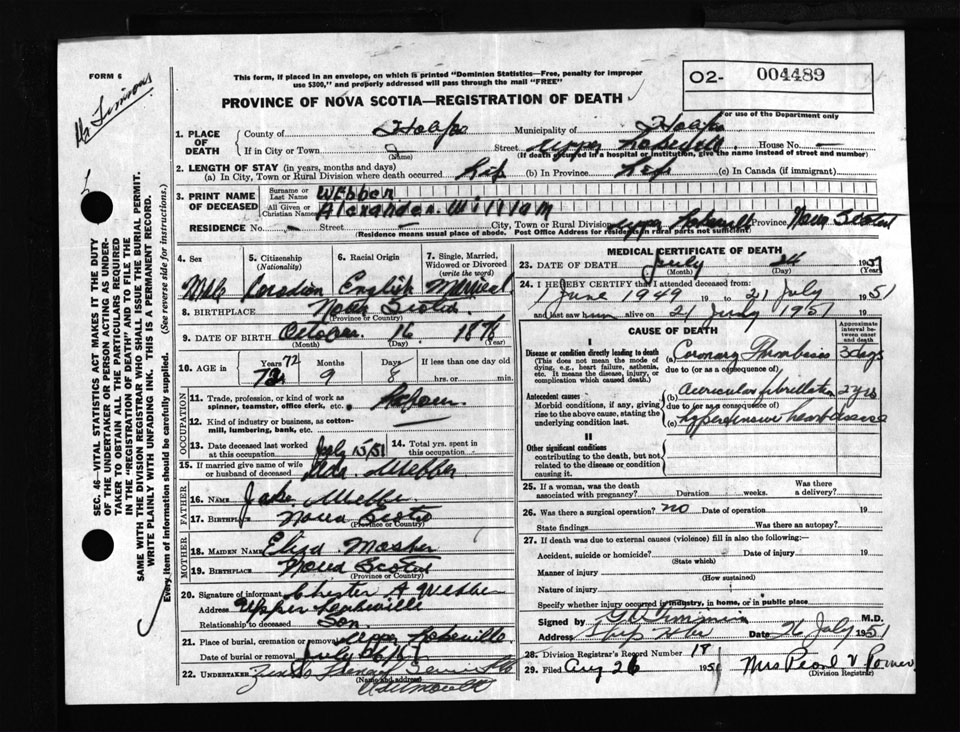 FORM 6
This form, if placed in an envelope, on which is printed "Dominion Statistics—Free, penalty for improper
use $300," and properly addressed will pass through the mail "FREE"
O2- 004489
For use of the Department only
PROVINCE OF NOVA SCOTIA—REGISTRATION OF DEATH
SEC. 46—VITAL STATISTICS ACT MAKES IT THE DUTY
OF THE UNDERTAKER OR PERSON ACTING AS UNDER-
TAKER TO OBTAIN ALL THE PARTICULARS REQUIRED
IN THE "REGISTRATION OF DEATH" AND TO FILE THE
SAME WITH THE DIVISION REGISTRAR WHO SHALL ISSUE THE BURIAL PERMIT.
WRITE PLAINLY WITH UNFADING INK. THIS IS A PERMANENT RECORD.
Every item of information should be carefully supplied. (See reverse side for instructions.)
1. PLACE OF DEATH
County of Municipality of
If in City or Town Street Upper House No. —
(Name) (If death occurred in a hospital or institution, give the name instead of street and number)
2. LENGTH OF STAY (in years, months and days)
(a) In City, Town or Rural Division where death occurred Life (b) In Province Life (c) In Canada (if immigrant)
3. PRINT NAME OF DECEASED
Surname or Last Name Webber
All Given or Christian Names Alexander William
RESIDENCE No. — Street City, Town or Rural Division Upper Province Nova Scotia
(Residence means usual place of abode. Post Office Address for residents in rural parts not sufficient)
4. Sex 5. Citizenship (Nationality) 6. Racial Origin 7. Single, Married, Widowed or Divorced (write the word)
Male Canadian English Married
8. BIRTHPLACE Nova Scotia
(Province or Country)
9. DATE OF BIRTH October 16 1878
(Month) (Day) (Year)
10. AGE in Years 72 Months 9 Days 8 If less than one day old
hrs. or min.
OCCUPATION
11. Trade, profession, or kind of work as
spinner, teamster, office clerk, etc.
12. Kind of industry or business, as cotton-
mill, lumbering, bank, etc.
13. Date deceased last worked at this occupation July 15/51 14. Total yrs. spent in this occupation
15. If married give name of wife or husband of deceased Webber
FATHER
16. NAME
17. BIRTHPLACE Nova Scotia
(Province or Country)
MOTHER
18. MAIDEN NAME Eliza Mosher
19. BIRTHPLACE Nova Scotia
(Province or Country)
20. Signature of informant Chester A Webber
Address Upper
Relationship to deceased Son
21. Place of burial, cremation or removal Upper
Date of burial or removal July 26/51
22. UNDERTAKER
(Name and address)
MEDICAL CERTIFICATE OF DEATH
23. DATE OF DEATH July 24 1951
(Month) (Day) (Year)
24. I HEREBY CERTIFY that I attended deceased from:
June 1949 19 to 21 July 1951
and last saw him alive on 21 July 1951 19
CAUSE OF DEATH
Approximate interval between onset and death
I
Disease or condition directly leading to death
(This does not mean the mode of dying, e.g., heart failure, asthenia, etc. It means the disease, injury, or complication which caused death.)
(a) Coronary Thrombosis 3 days
due to (or as a consequence of)
Antecedent causes
Morbid conditions, if any, giving rise to the above cause, stating the underlying condition last.
(b) auricular fibrillation 2 yrs
due to (or as a consequence of)
(c) hypertensive heart disease
II
Other significant conditions
contributing to the death, but not related to the disease or condition causing it.
25. If a woman, was the death associated with pregnancy? Duration weeks. Was there a delivery?
26. Was there a surgical operation? no Date of operation 19
State findings Was there an autopsy?
27. If death was due to external causes (violence) fill in also the following:—
Accident, suicide or homicide? Date of injury 19
(State which)
Manner of injury
(How sustained)
Nature of injury
Specify whether injury occurred in industry, in home, or in public place
Signed by M.D.
Address Date 26 July 1951
28. Division Registrar's Record Number 18
29. Filed Aug 26 1951 Mrs Pearl V
(Division Registrar)